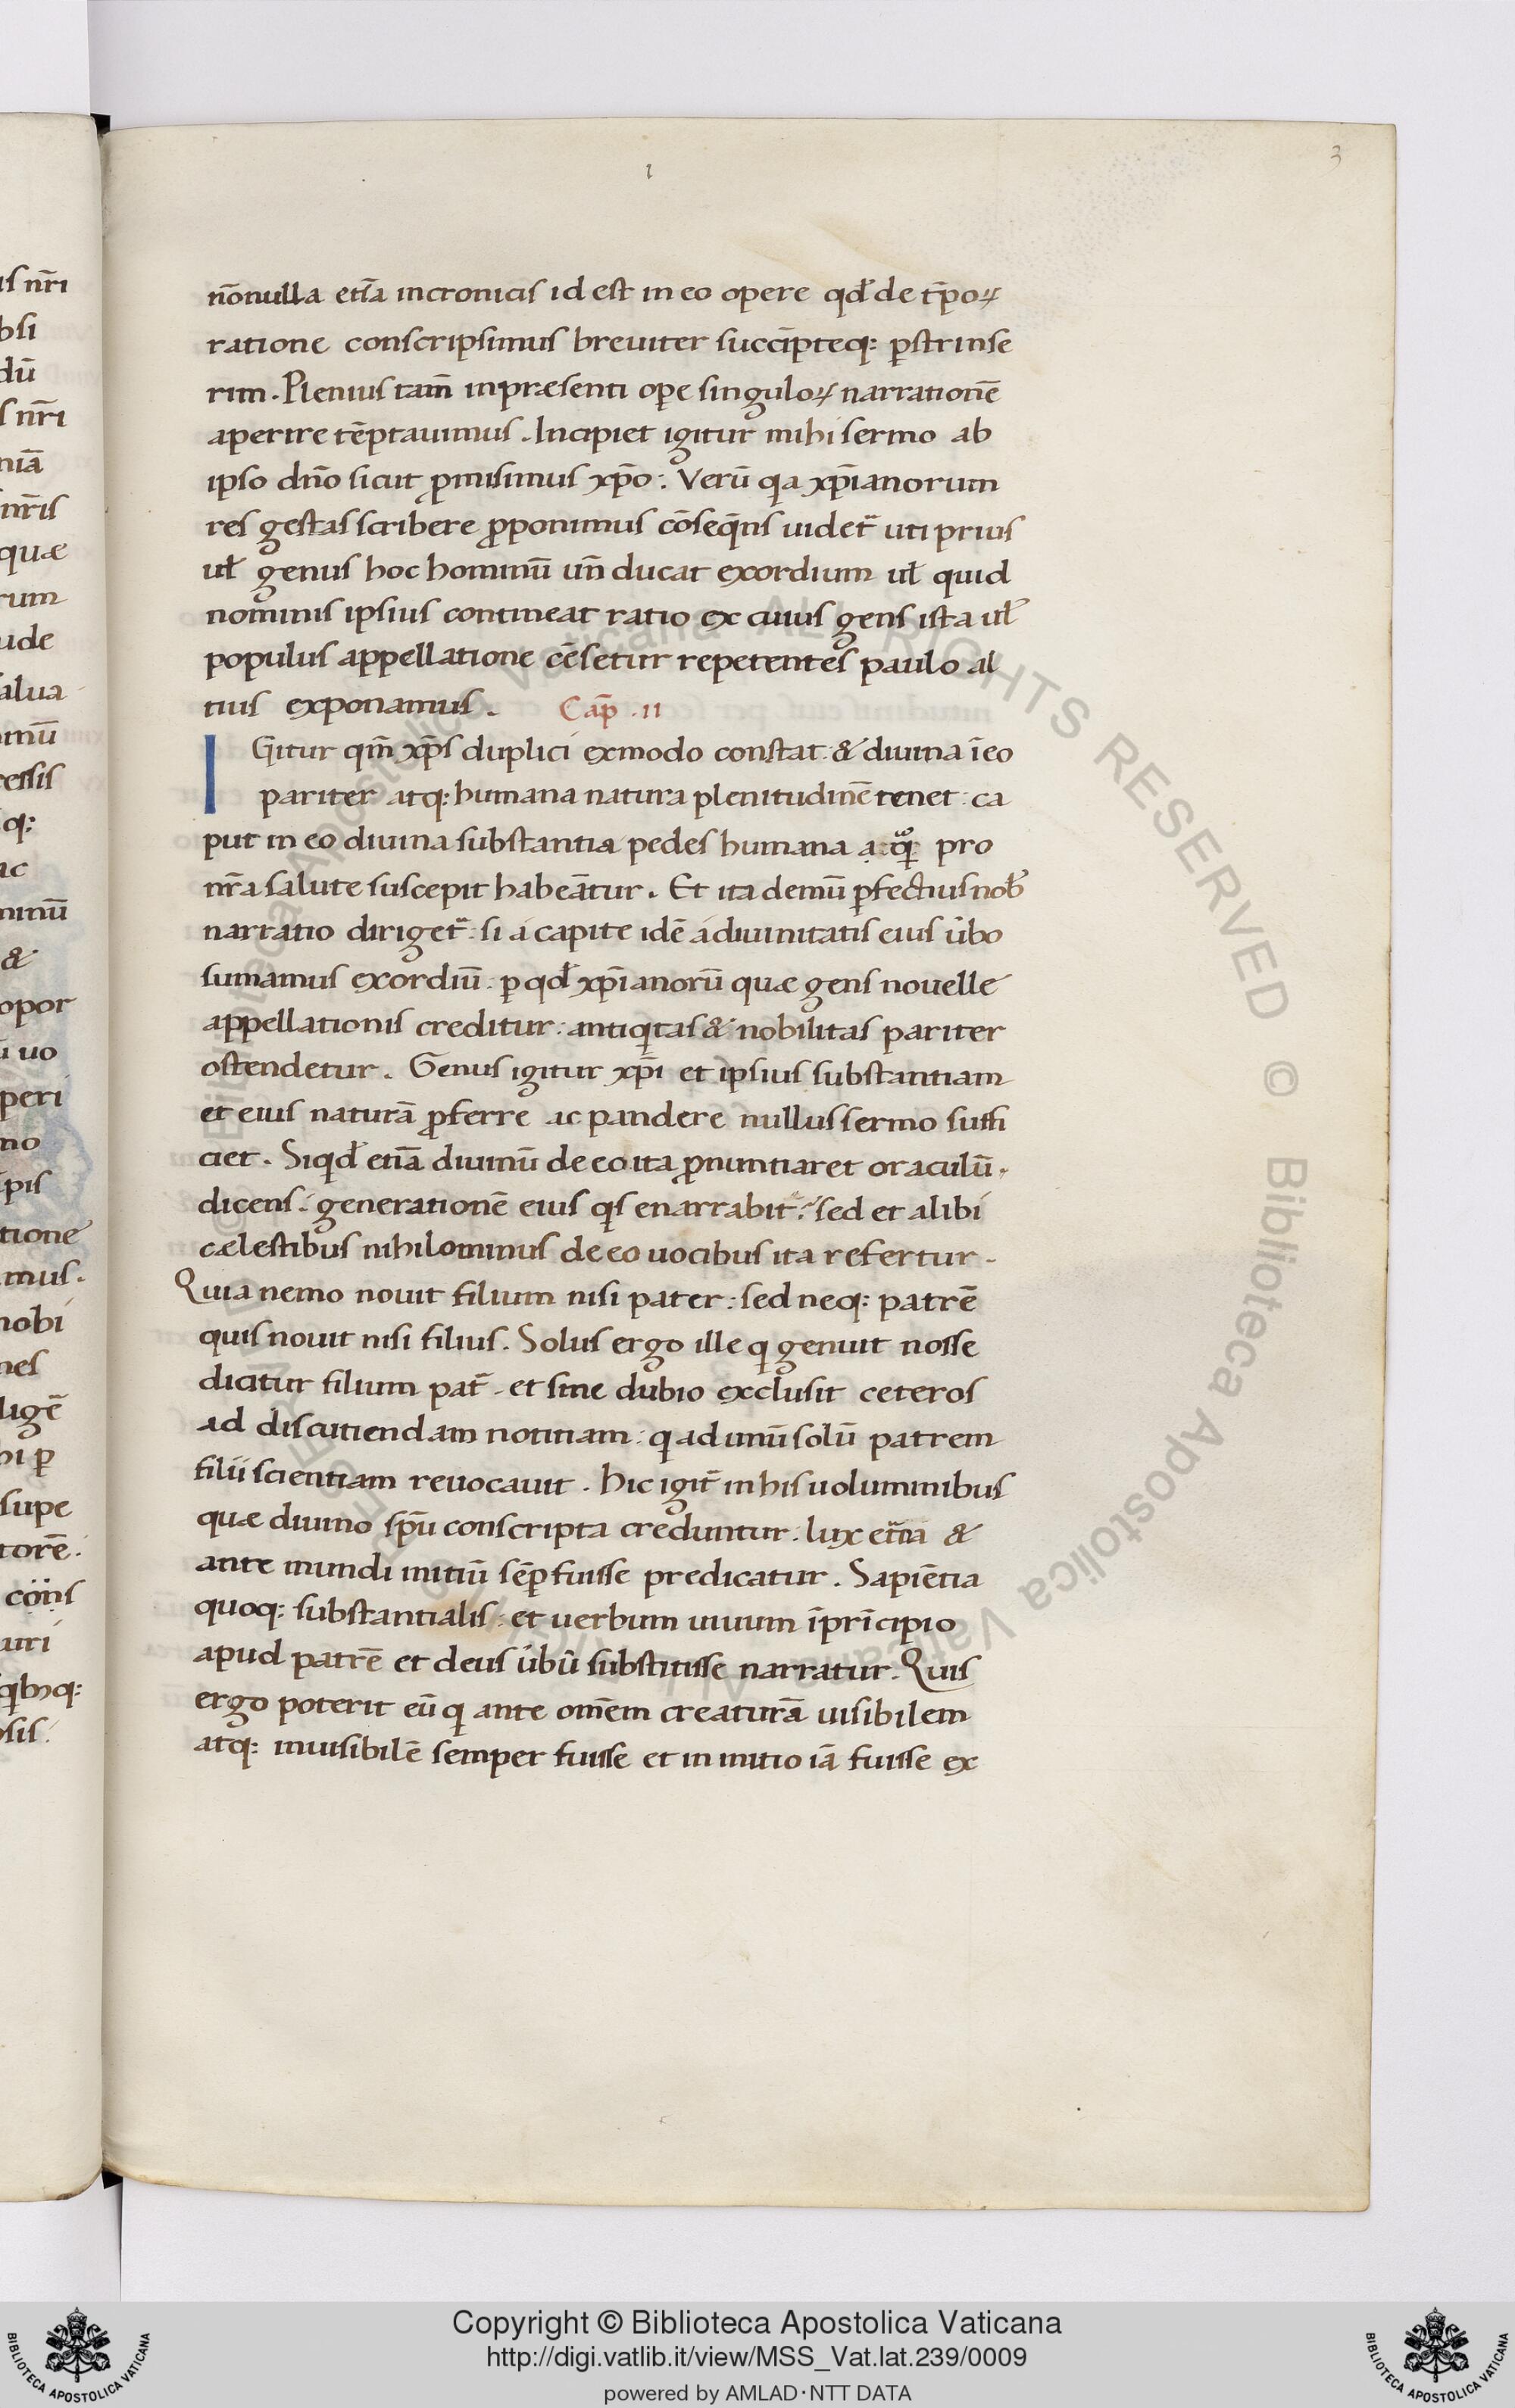 ı
3
nōnulla etīa incronicis id est in eo opere qđ de tp̄oꝝ
ratione conscripsimus breuiter succīpteq: ꝑstrinse
rim. Plenius tam̄ inpræsenti oꝑe singuloꝝ narrationē
aperire tēptauimus. Incipiet igitur mihi sermo ab
ipso dn̄o sicut ꝓmisimus xp̄o: Verū qa xp̄ianorum
res gestas scribere ꝓponimus cōseq̄ns uidet᷑ uti prius
uł genus hoc hominū un̄ ducat exordium uł quid
nominis ipsius contineat ratio ex cuius gens ista uł
populus appellatione cēsetur repetentes paulo al
tius exponamus. Cap̄ .II
IGitur qm̄ xp̄s duplici exmodo constat: & diuina īeo
pariter atq: humana natura plenitudinē tenet: ca
put in eo diuina substantia pedes humana pro
nr̄a salute suscepit habeātur. Et ita demū ꝑfectius nob̄
narratio diriget᷑: si á capite idē ádiuinitatis eius ūbo
sumamus exordiū: ꝑ qđ xp̄ianorū quæ gens nouelle
appellationis creditur: antiqitas & nobilitas pariter
ostendetur. Genus igitur xp̄i et ipsius substantiam
et eius naturā ꝓferre ac pandere nullus sermo suffi
ciet. Siqđ etīa diuinū de eo ita ꝓnuntiaret oraculū.
dicens: generationē eius qis enarrabit: sed et alibi
cælestibus nihilominus de eo uocibus ita refertur.
Quia nemo nouit filium nisi pater: sed neq: patrē
quis nouit nisi filius. Solus ergo ille q genuit nosse
dicitur filium pat̄. et sine dubio exclusit ceteros
ad discutiendam notitiam: q ad unū solū patrem
filii scientiam reuocauit. Hic igit᷑ in his uoluminibus
quæ diuino sp̄u conscripta creduntur: lux et̄na &
ante mundi initiū sēꝑ fuisse predicatur. Sapiētia
quoq: substantialis: et uerbum uiuum īprīcipio
apud patrē et deus ūbū substitisse narratur. Quis
ergo poterit eū q ante om̄em creaturā uisibilem
atq: inuisibilē semper fuisse et in initio iā fuisse ex
Copyright © Biblioteca Apostolica Vaticana
http://digi.vatlib.it/view/MSS_Vat.lat.239/0009
powered by AMLAD·NTT DATA